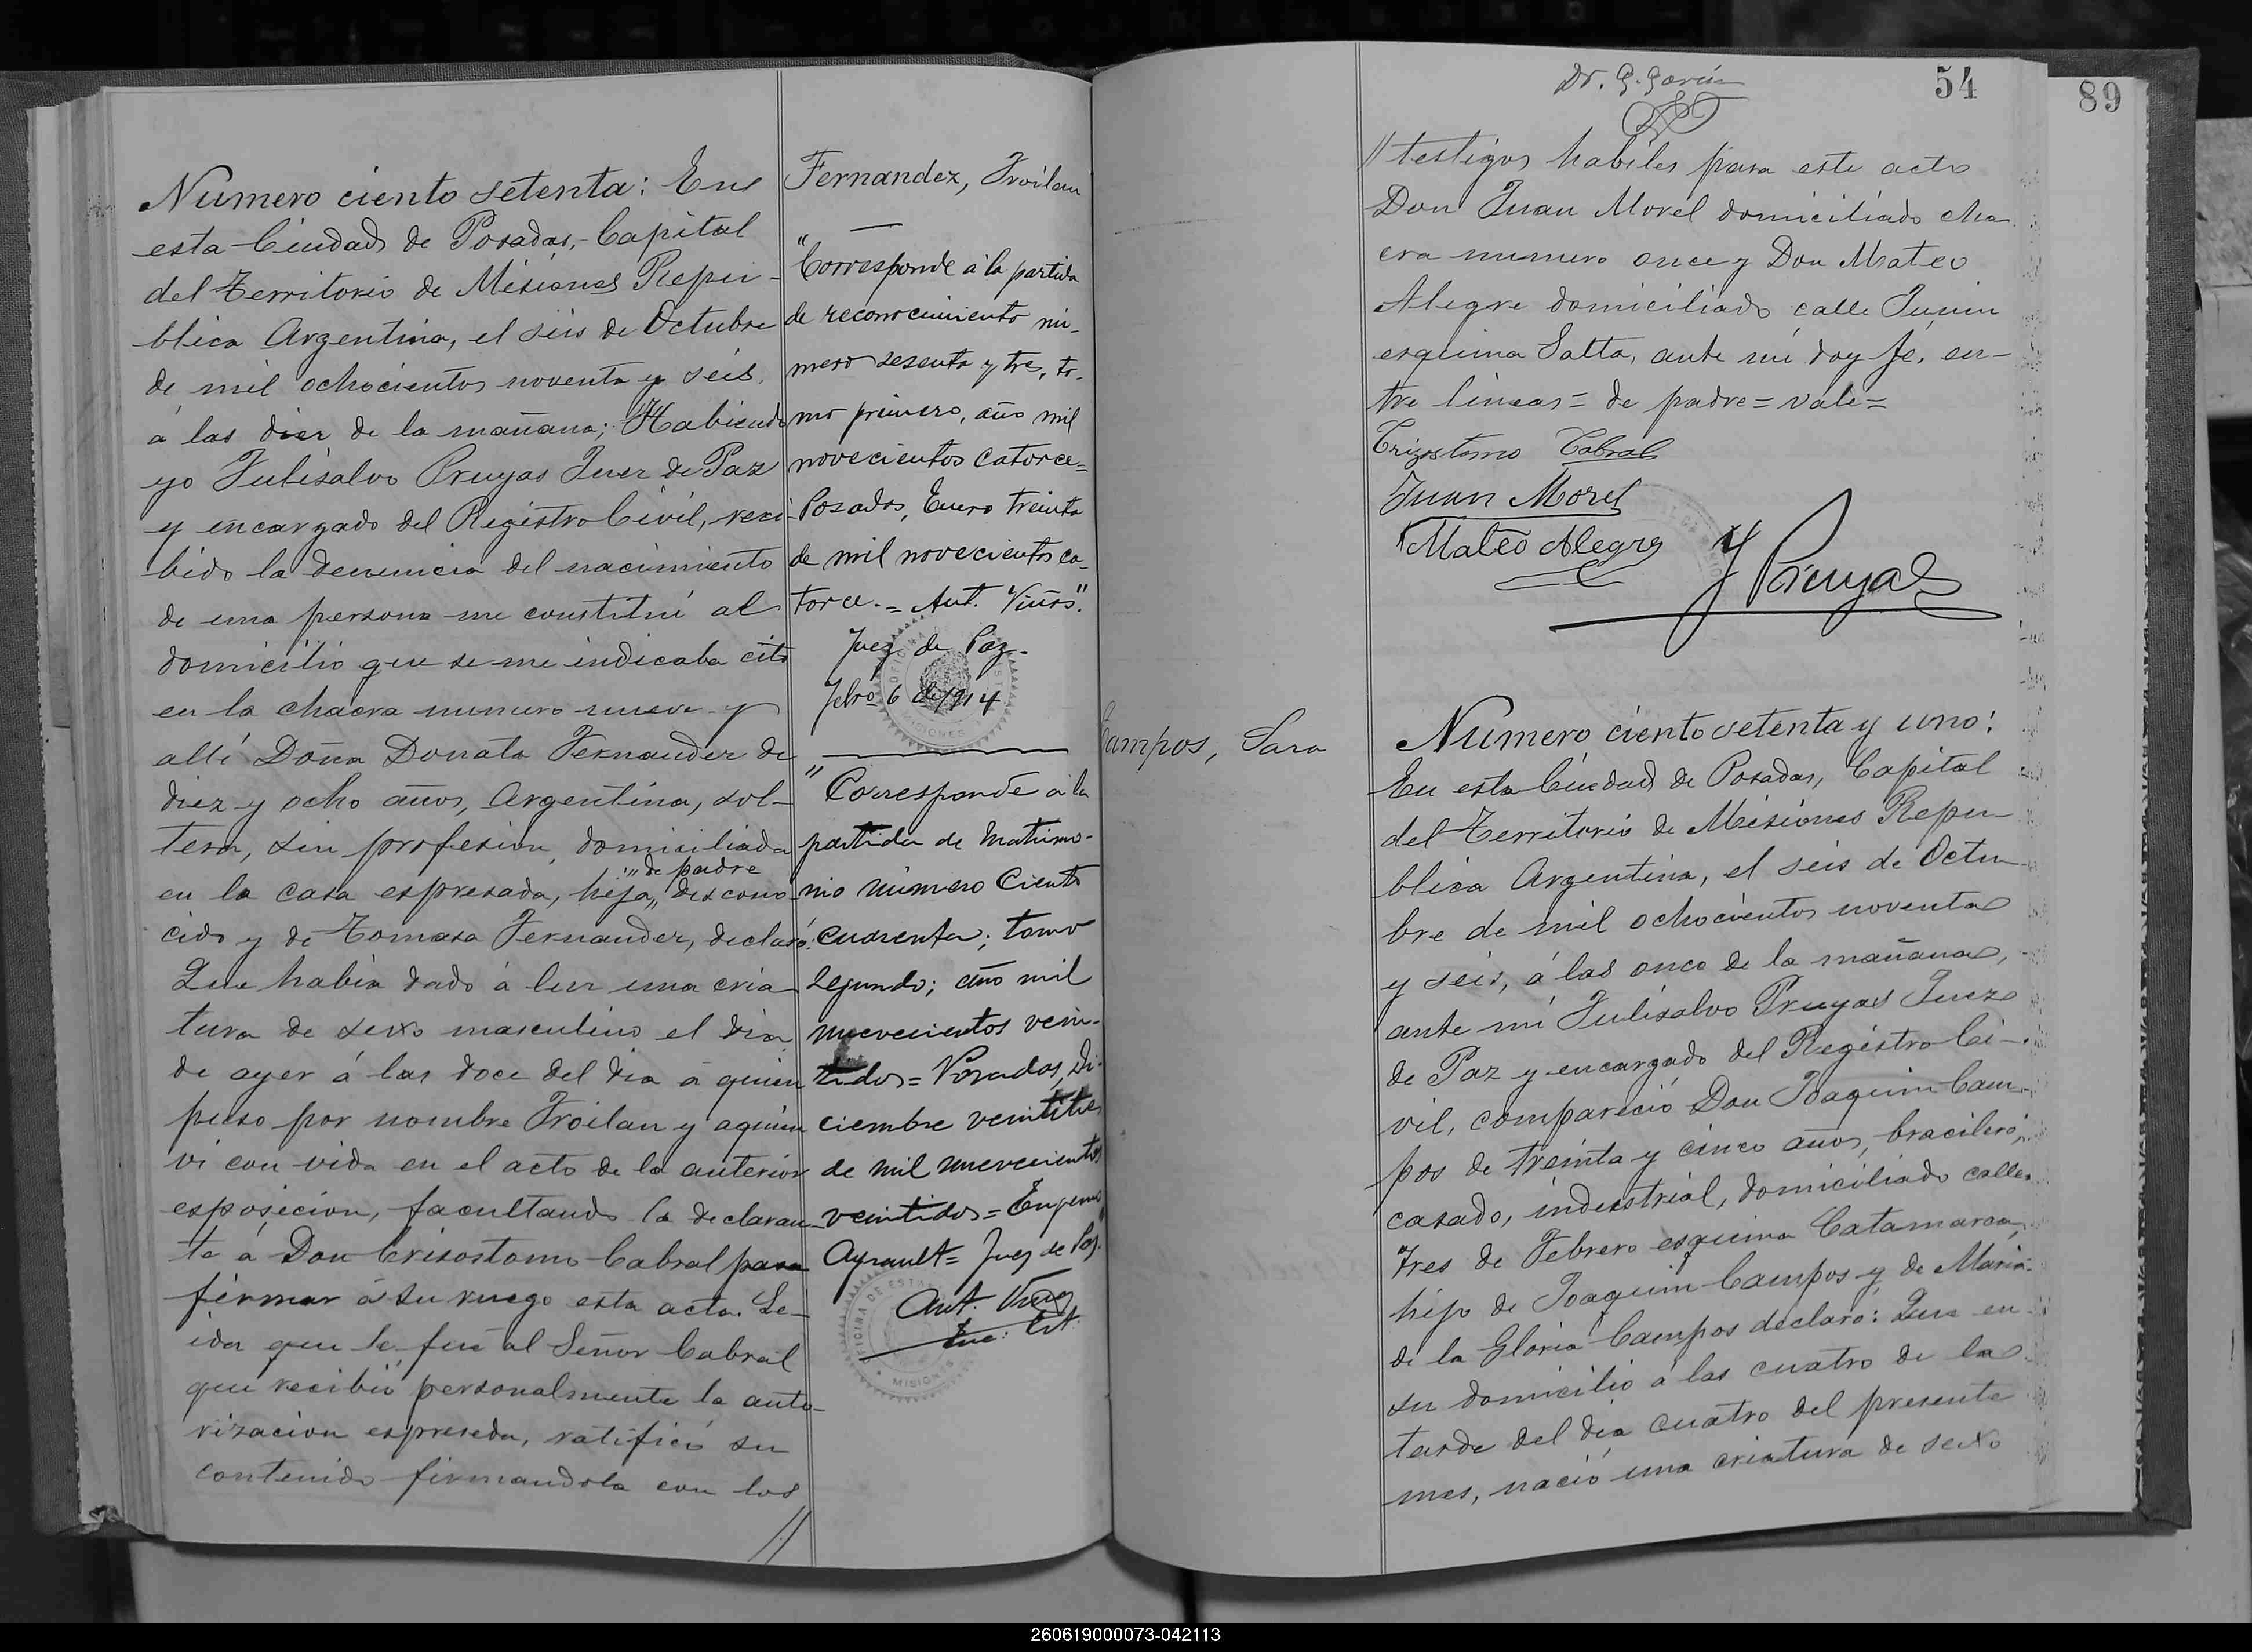 Numero ciento setenta: En
esta Ciudad de Posadas, Capital
del Territorio de Misiones Repu-
blica Argentina, el seis de Octubre
de mil ochocientos noventa y seis,
á las diez de la mañana; Habiendo
yo Fulisalvo Pruyas Juez de Paz
y encargado del Registro Civil, reci
bido la denuncia del nacimiento
de una persona me constituí al
domicilio que se me indicaba cito
en la chacra numero nueve y
allí Doña Donata Fernandez de
diez y ocho años, Argentina, sol-
tera, sin profesion, domiciliada
" de padre
en la casa espresada, hija " descono
cido y de Tomasa Fernandez, declaró:
Que habia dado á luz una cria
tura de sexo masculino el dia
de ayer á las doce del dia á quien
puso por nombre Froilan y aquien
vi con vida en el acto de la anterior
esposicion, facultando la declaran
te á Don Crisostomo Cabral para
firmar á su ruego esta acta. Le-
ida que le fue al Señor Cabral
que recibió personalmente la auto-
rizacion espresada, ratificó su
contenido firmandola con los
//
Fernandez, Froilan
"Corresponde á la partida
de reconocimiento nú-
mero sesenta y tre, to-
mo primero, año mil
novecientos catorce=
Posadas, Enero treinta
de mil novecientos ca-
torce.= Ant. Viñas".
Juez de Paz.
Febro 6 de 1914
OFICINA
MISIONES
"Corresponde á la
partida de Matrimo-
nio número Ciento
cuarenta; tomo
Segundo; año mil
nuevecientos vein-
tidos= Posadas, Di-
ciembre veintitres
de mil nuevecientos
veintidos= Eugenio
Ayrault= Juez de Paz."
Ant.
OFICINA DE EST
MISIONES
Dr. G. Garcia
54
89
// testigos habiles para este acto
Don Juan Morel domiciliado cha
cra numero once y Don Mateo
Alegre domiciliado calle Junin
esquina Salta, ante mí doy fé, en-
tre lineas = de padre = vale=
Crizostomo Cabral
Juan Morel
Mateo Alegre
F Pruyas
Campos, Sara
Numero ciento setenta y uno:
En esta Ciudad de Posadas, Capital
del Territorio de Misiones Repu-
blica Argentina, el seis de Octu-
bre de mil ochocientos noventa
y seis, á las once de la mañana,
ante mí Fulisalvo Pruyas Juez
de Paz y encargado del Registro Ci-
vil, compareció Don Joaquim Cam-
pos de treinta y cinco años, brasilero,
casado, industrial, domiciliado calle
Tres de Febrero esquina Catamarca,
hijo de Joaquim Campos y de Maria
de la Gloria Campos declaro: Que en
su domicilio á las cuatro de la
tarde del dia cuatro del presente
mes, nació una criatura de sexo
260619000073-042113